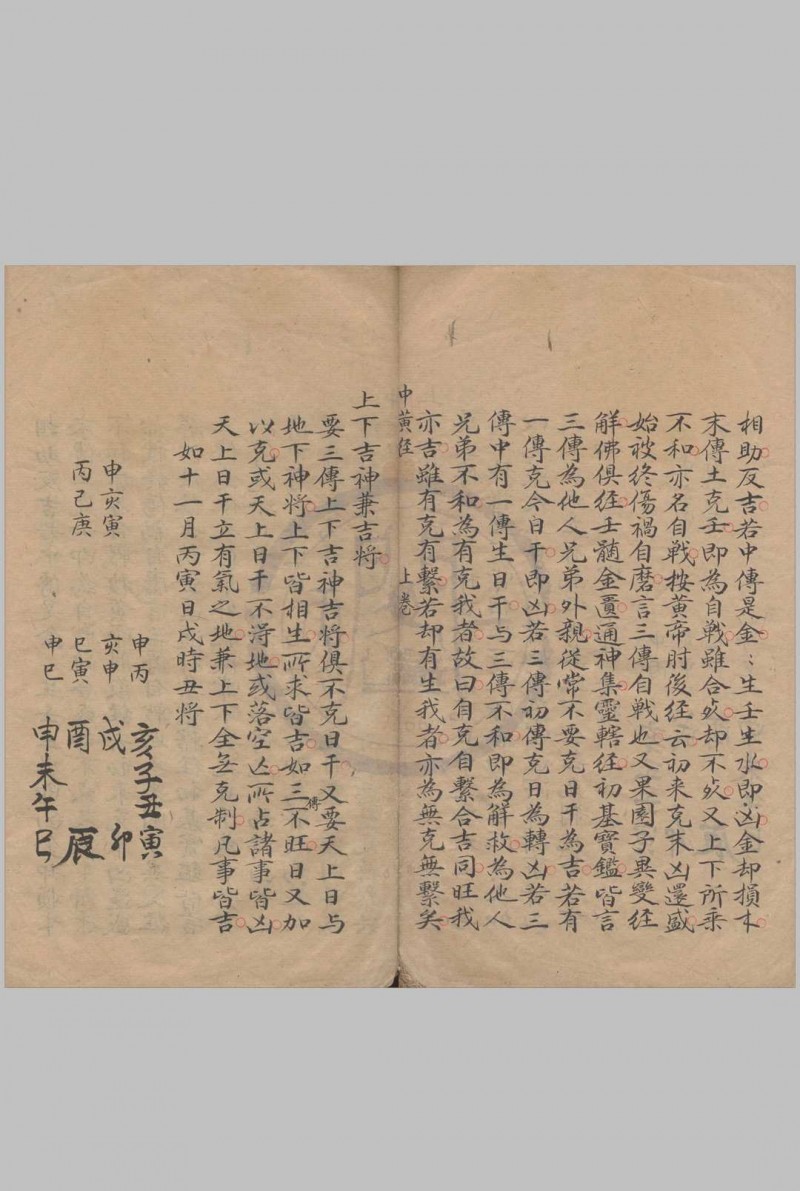 相助反吉若中傳是金：生壬生水即凶金却損木
末傳土克壬即為自戰雖合災却不災又上下所乘
不和亦名自戰按黃帝肘後経云初来克末凶還盛
始被終傷禍自磨言三傳自戰也又果園子異變経
解佛俱経壬髓金匱通神集靈轄経初基寶鑑皆言
三傳為他人兄弟外親從常不要克日干為吉若有
一傳克今日干即凶若三傳初傳克日為轉凶若三
傳中有一傳生日干与三傳不和即為解救為他人
兄弟不和為有克我者故曰自克自繫合吉同旺我
亦吉雖有克有繫若却有生我者亦為無克無繫矣
中黃経
上卷
上下吉神兼吉將
要三傳上下吉神吉將俱不克日干又要天上日与
地下神將上下皆相生所求皆吉如三傳不旺日又加
以克或天上日干不淂地或落空亡所占諸事皆凶
天上日干立有氣之地兼上下全無克制凡事皆吉
如十一月丙寅日戌時丑將
申丙
申亥寅 亥申
丙己庚 巳寅
申巳
亥子丑寅
戌 卯
酉 辰
申未午巳